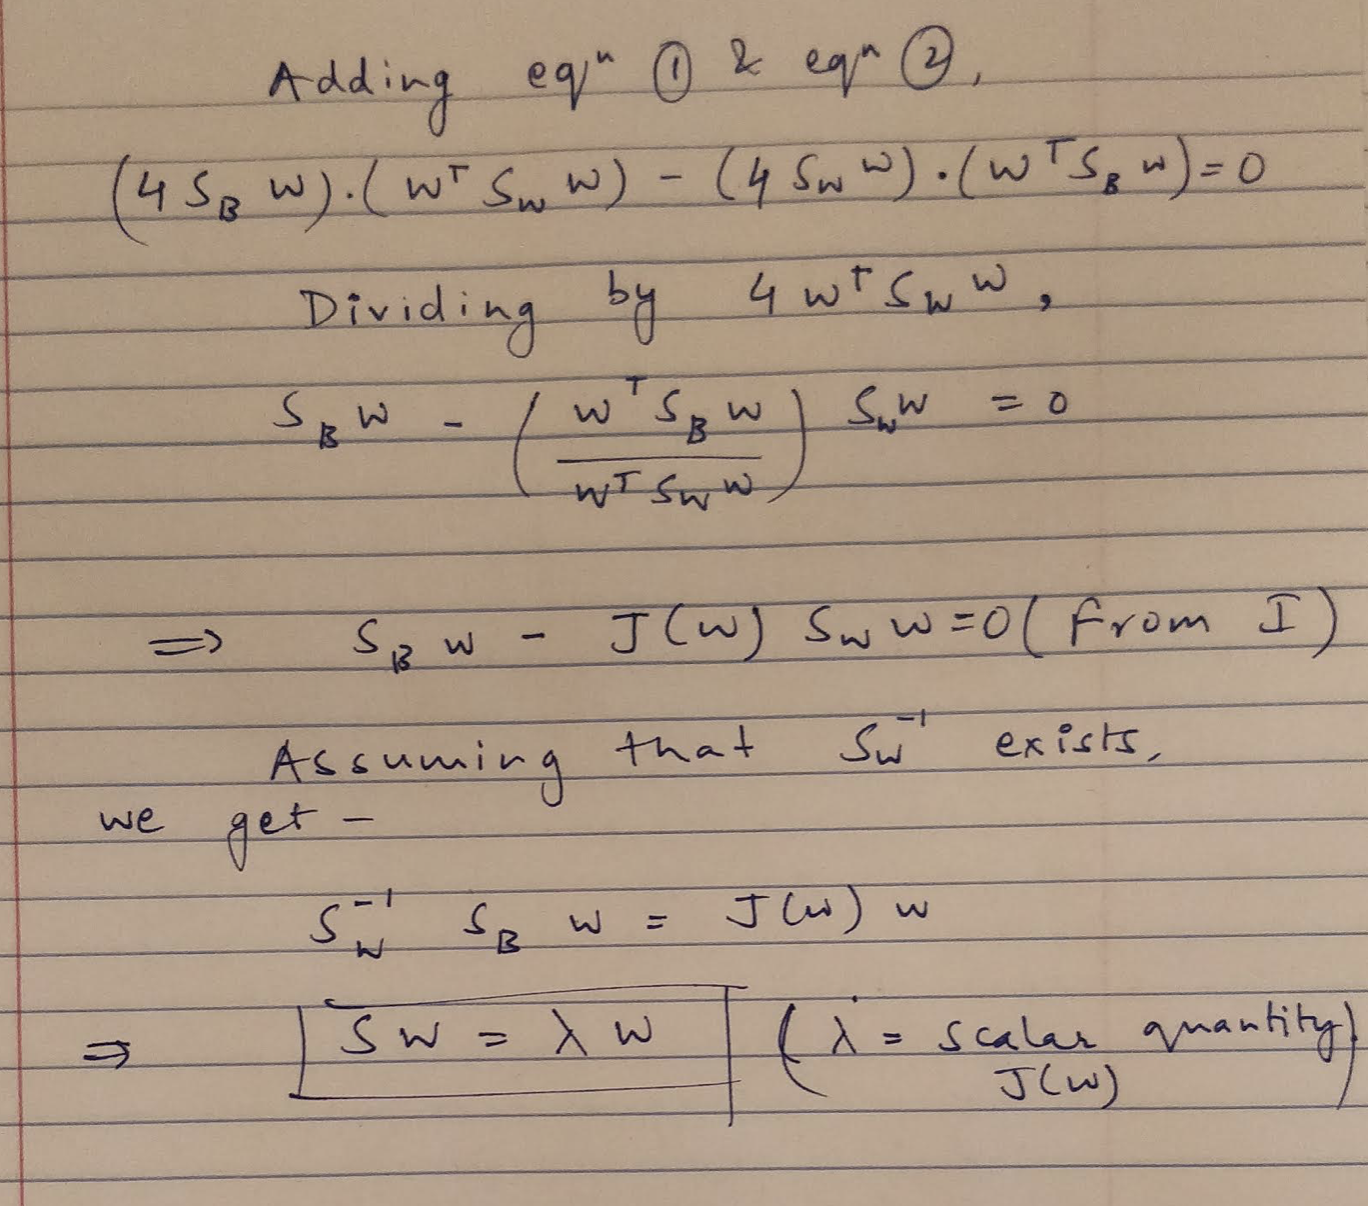 Adding eqⁿ ① & eqⁿ ②,
(4 S_B W).(Wᵀ S_W W) - (4 S_W W).(Wᵀ S_B W) = 0
Dividing by 4 Wᵀ S_W W,
S_B W - (Wᵀ S_B W / Wᵀ S_W W) S_W W = 0
⇒ S_B W - J(W) S_W W = 0 (From I)
Assuming that S_W⁻¹ exists,
we get -
S_W⁻¹ S_B W = J(W) W
⇒ SW = λW (λ = scalar quantity)
J(W)